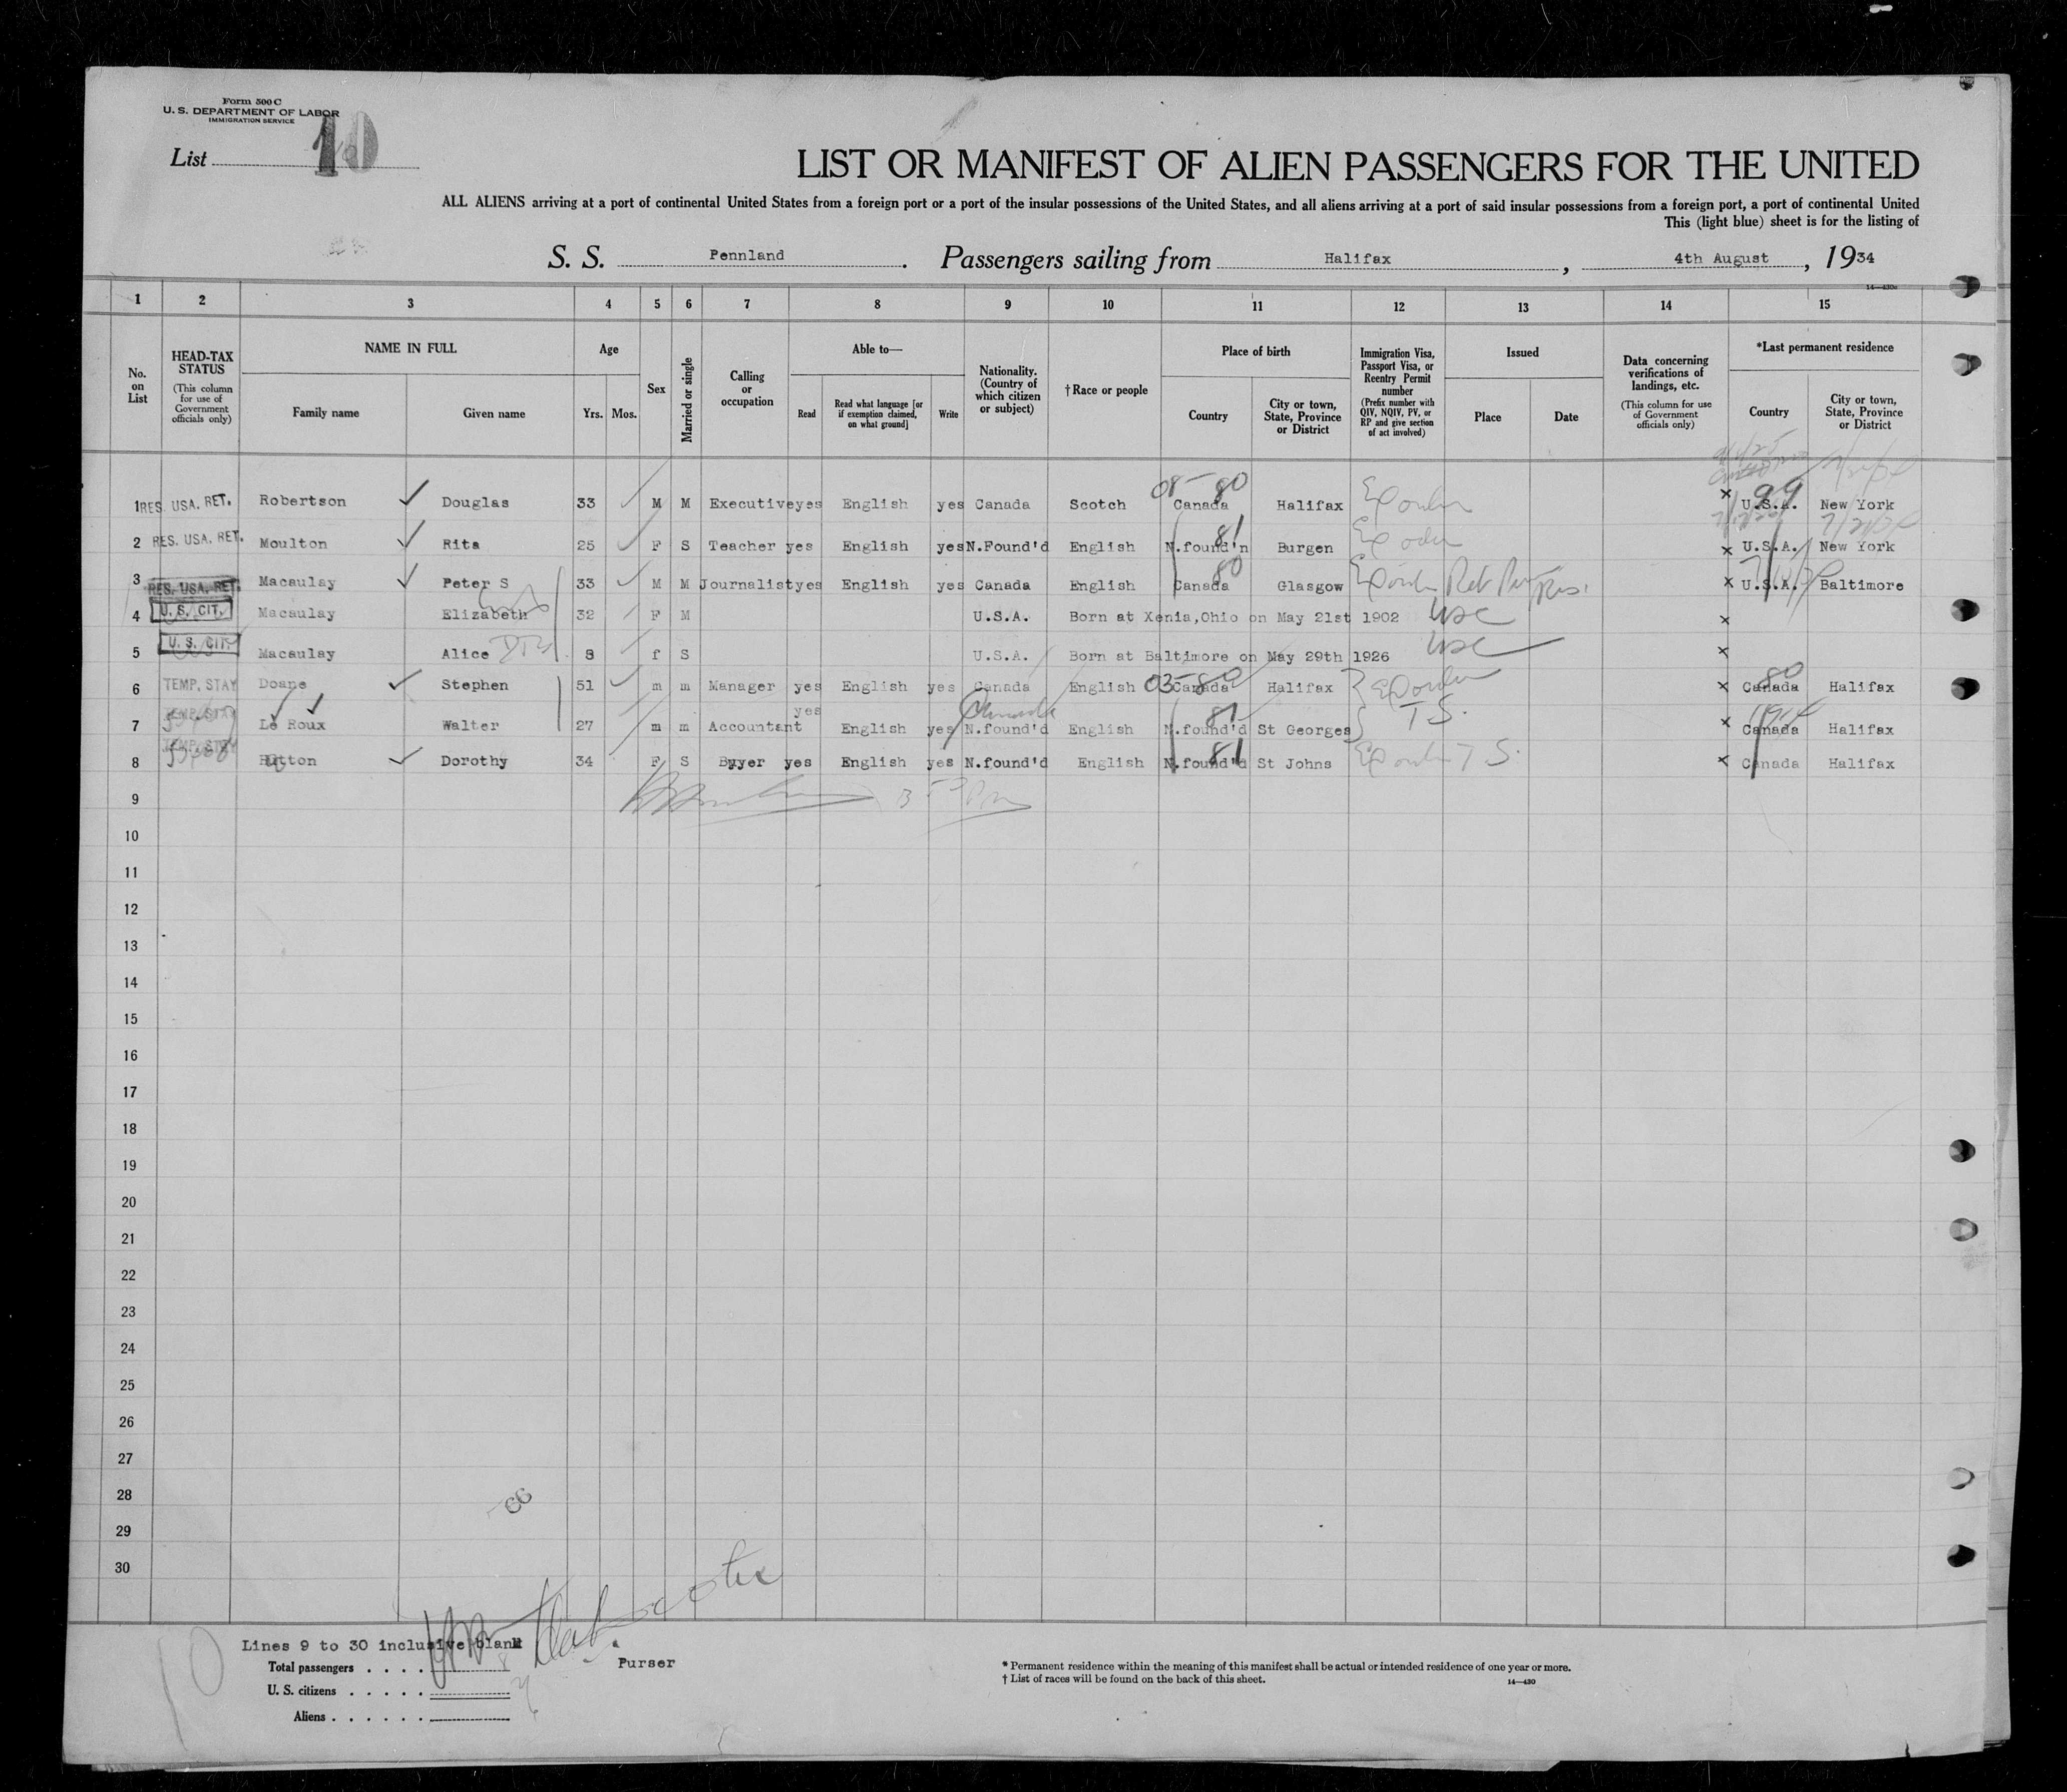 Form 500 C
U. S. DEPARTMENT OF LABOR
IMMIGRATION SERVICE
List 10
LIST OR MANIFEST OF ALIEN PASSENGERS FOR THE UNITED
ALL ALIENS arriving at a port of continental United States from a foreign port or a port of the insular possessions of the United States, and all aliens arriving at a port of said insular possessions from a foreign port, a port of continental United
This (light blue) sheet is for the listing of
S. S. Pennland. Passengers sailing from Halifax, 4th August, 1934
1 2 3 4 5 6 7 8 9 10 11 12 13 14 15
No. on List
HEAD-TAX STATUS (This column for use of Government officials only)
NAME IN FULL Family name Given name
Age Yrs. Mos.
Sex
Married or single
Calling or occupation
Able to— Read Read what language [or if exemption claimed, on what ground] Write
Nationality. (Country of which citizen or subject)
†Race or people
Place of birth Country City or town, State, Province or District
Immigration Visa, Passport Visa, or Reentry Permit number (Prefix number with QIV, NQIV, PV, or RP and give section of act involved)
Issued Place Date
Data concerning verifications of landings, etc. (This column for use of Government officials only)
*Last permanent residence Country City or town, State, Province or District
1 RES. USA. RET. Robertson Douglas 33 M M Executive yes English yes Canada Scotch 08-80 Canada Halifax x 99 U.S.A. New York
2 RES. USA. RET. Moulton Rita 25 F S Teacher yes English yes N.Found'd English 81 N.found'n Burgen x U.S.A. New York
3 RES. USA. RET. Macaulay Peter S 33 M M Journalist yes English yes Canada English 80 Canada Glasgow x U.S.A. Baltimore
4 U. S. CIT. Macaulay Elizabeth 32 F M U.S.A. Born at Xenia,Ohio on May 21st 1902 USC x
5 U. S. CIT. Macaulay Alice 8 f S U.S.A. Born at Baltimore on May 29th 1926 USC x
6 TEMP. STAY Doane Stephen 51 m m Manager yes English yes Canada English 03-80 Canada Halifax x 80 Canada Halifax
7 TEMP. STAY Le Roux Walter 27 m m Accountant yes English yes Canada N.found'd English 81 N.found'd St Georges T S. x Canada Halifax
8 TEMP. STAY Hutton Dorothy 34 F S Buyer yes English yes N.found'd English 81 N.found'd St Johns T S. x Canada Halifax
9
10
11
12
13
14
15
16
17
18
19
20
21
22
23
24
25
26
27
28
29
30
66
10
Lines 9 to 30 inclusive blank
Total passengers
Purser
U. S. citizens
Aliens
* Permanent residence within the meaning of this manifest shall be actual or intended residence of one year or more.
† List of races will be found on the back of this sheet.
14—430